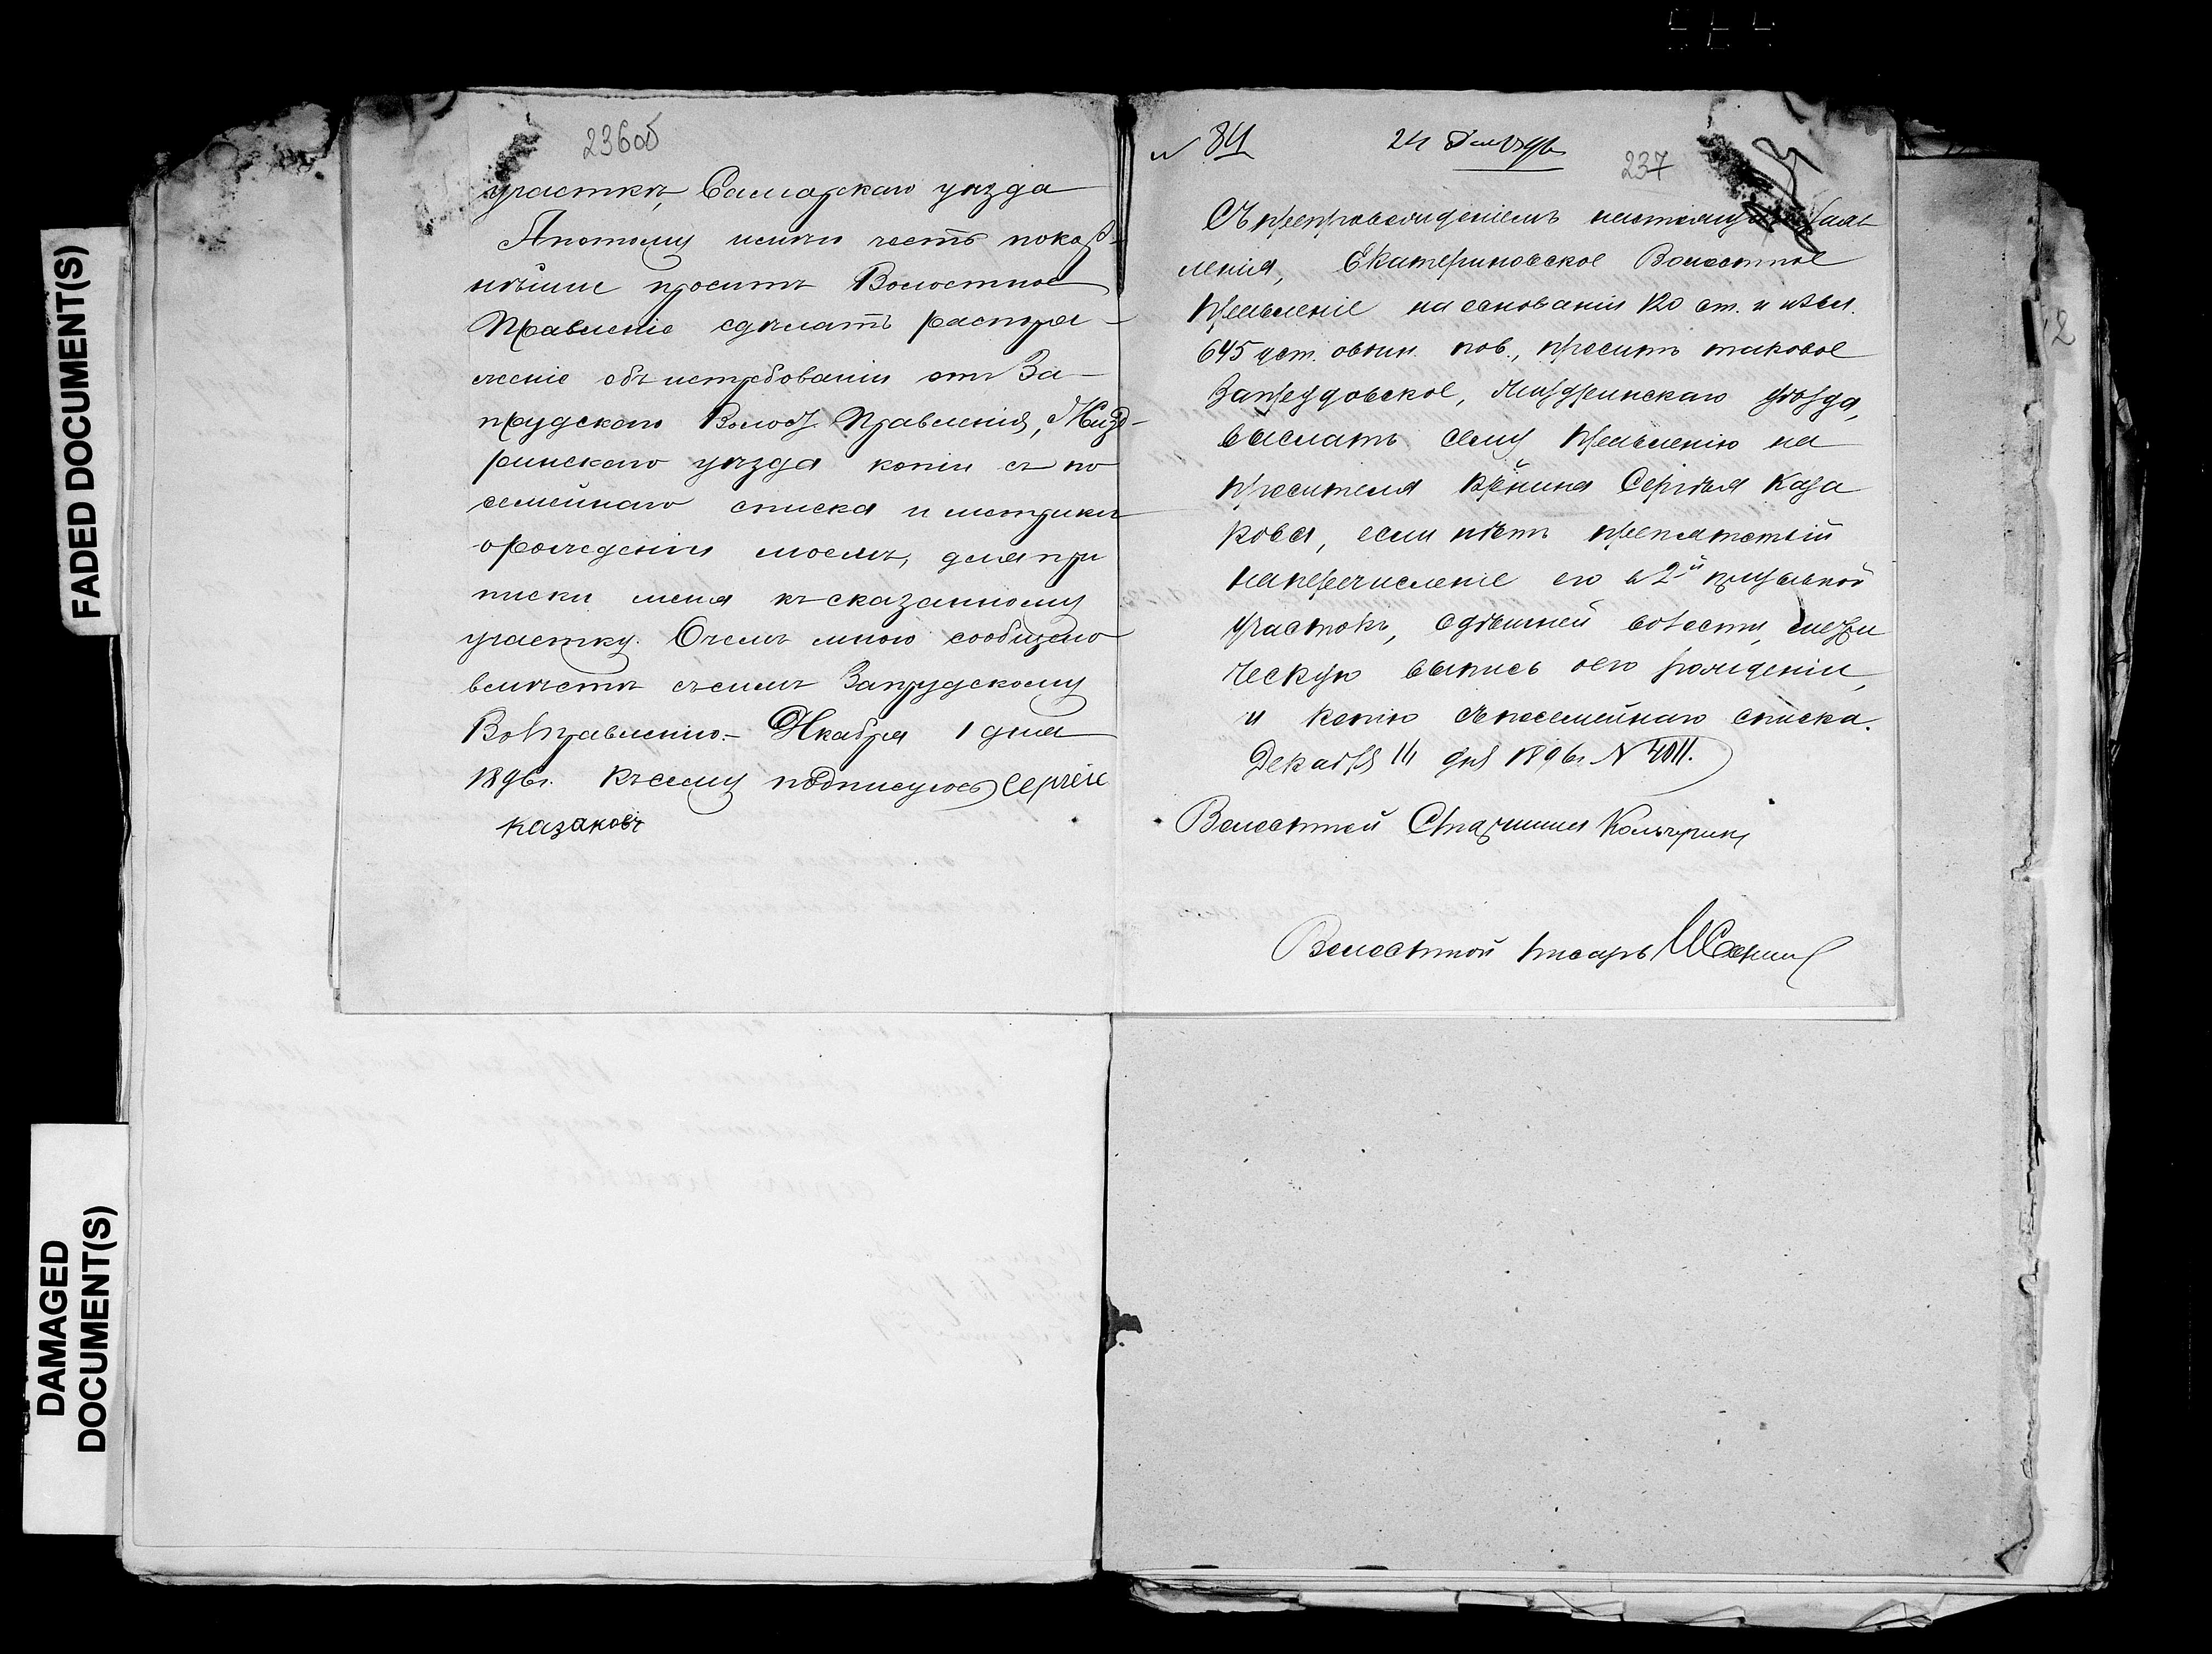 FADED DOCUMENT(S)
DAMAGED
DOCUMENT(S)
236об
участкѣ, Самарскаго уѣзда
Апотому имѣю честь покор-
нѣйше просить Волостное
Правленіе сдѣлать распоря-
женіе объ истребованіи отъ За-
прудскаго Волост. Правленія, Жизд-
ринскаго уѣзда копіи съ по
семейнаго списка и метрики
орожденіи моемъ, для при
писки меня къ сказанному
участку. Очемъ мною сообщено
вмѣстѣ съ симъ Запрудскому
Вол правленію.- Декабря 1 дня
1896г. Къ сему подписуюсь Сергеи
казаковъ
N 84 24 Декабря
237
Съ препровожденіемъ настоящаго заяв
ленія, Екатериновское Волостное
Правленіе на основаніи 120 ст. и
645 уст. о пов., проситъ таковое
Запрудовское, Жиздринскаго уѣзда,
выслать сему Правленію на
просителя Сергѣя Каза
кова, если нѣтъ препятствій
на перечисленіе его в 2й
участокъ, здѣшней волости, метри
ческую выпись о его рожденіи,
и копію съ посемейнаго списка.
Декабря 14 дня 1896г. N 4011.
Волостной Старшина
Волостной писарь